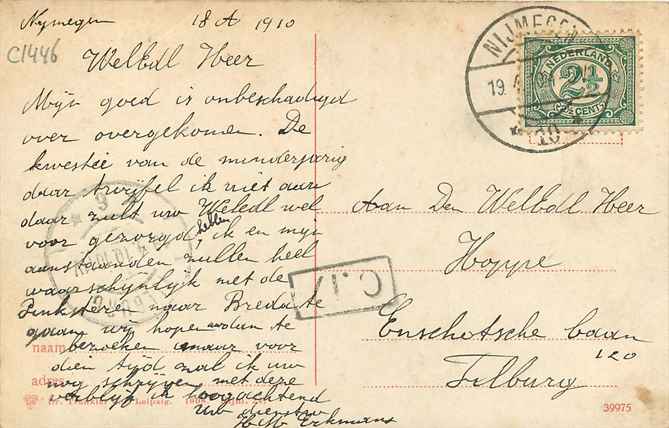 Nymegen 18 A 1910
C1446
WelEdl Heer
Mijn goed is onbeschadigd
over overgekomen. De
kwestie van de minderjarig
daar twijfel ik niet aan
daar zult uw WelEdl wel
voor gezorgd hebben, ik en mijn
aanstaanden zullen heel
waarschijnlijk met de
Pinksteren naar Breda te
gaan wij hopen dan te
bezoeken maar voor
dien tijd zal ik uw
nog schrijven met deze
verblijf ik hoogachtend
Uw
naam
adres
Dr. Trenkler Leipzig. 1906.
NIJMEGEN
19.
NEDERLAND
2½
CENT
Aan Den WelEdl Heer
Hoppe
Enschotsche baan
120
Tilburg
39975